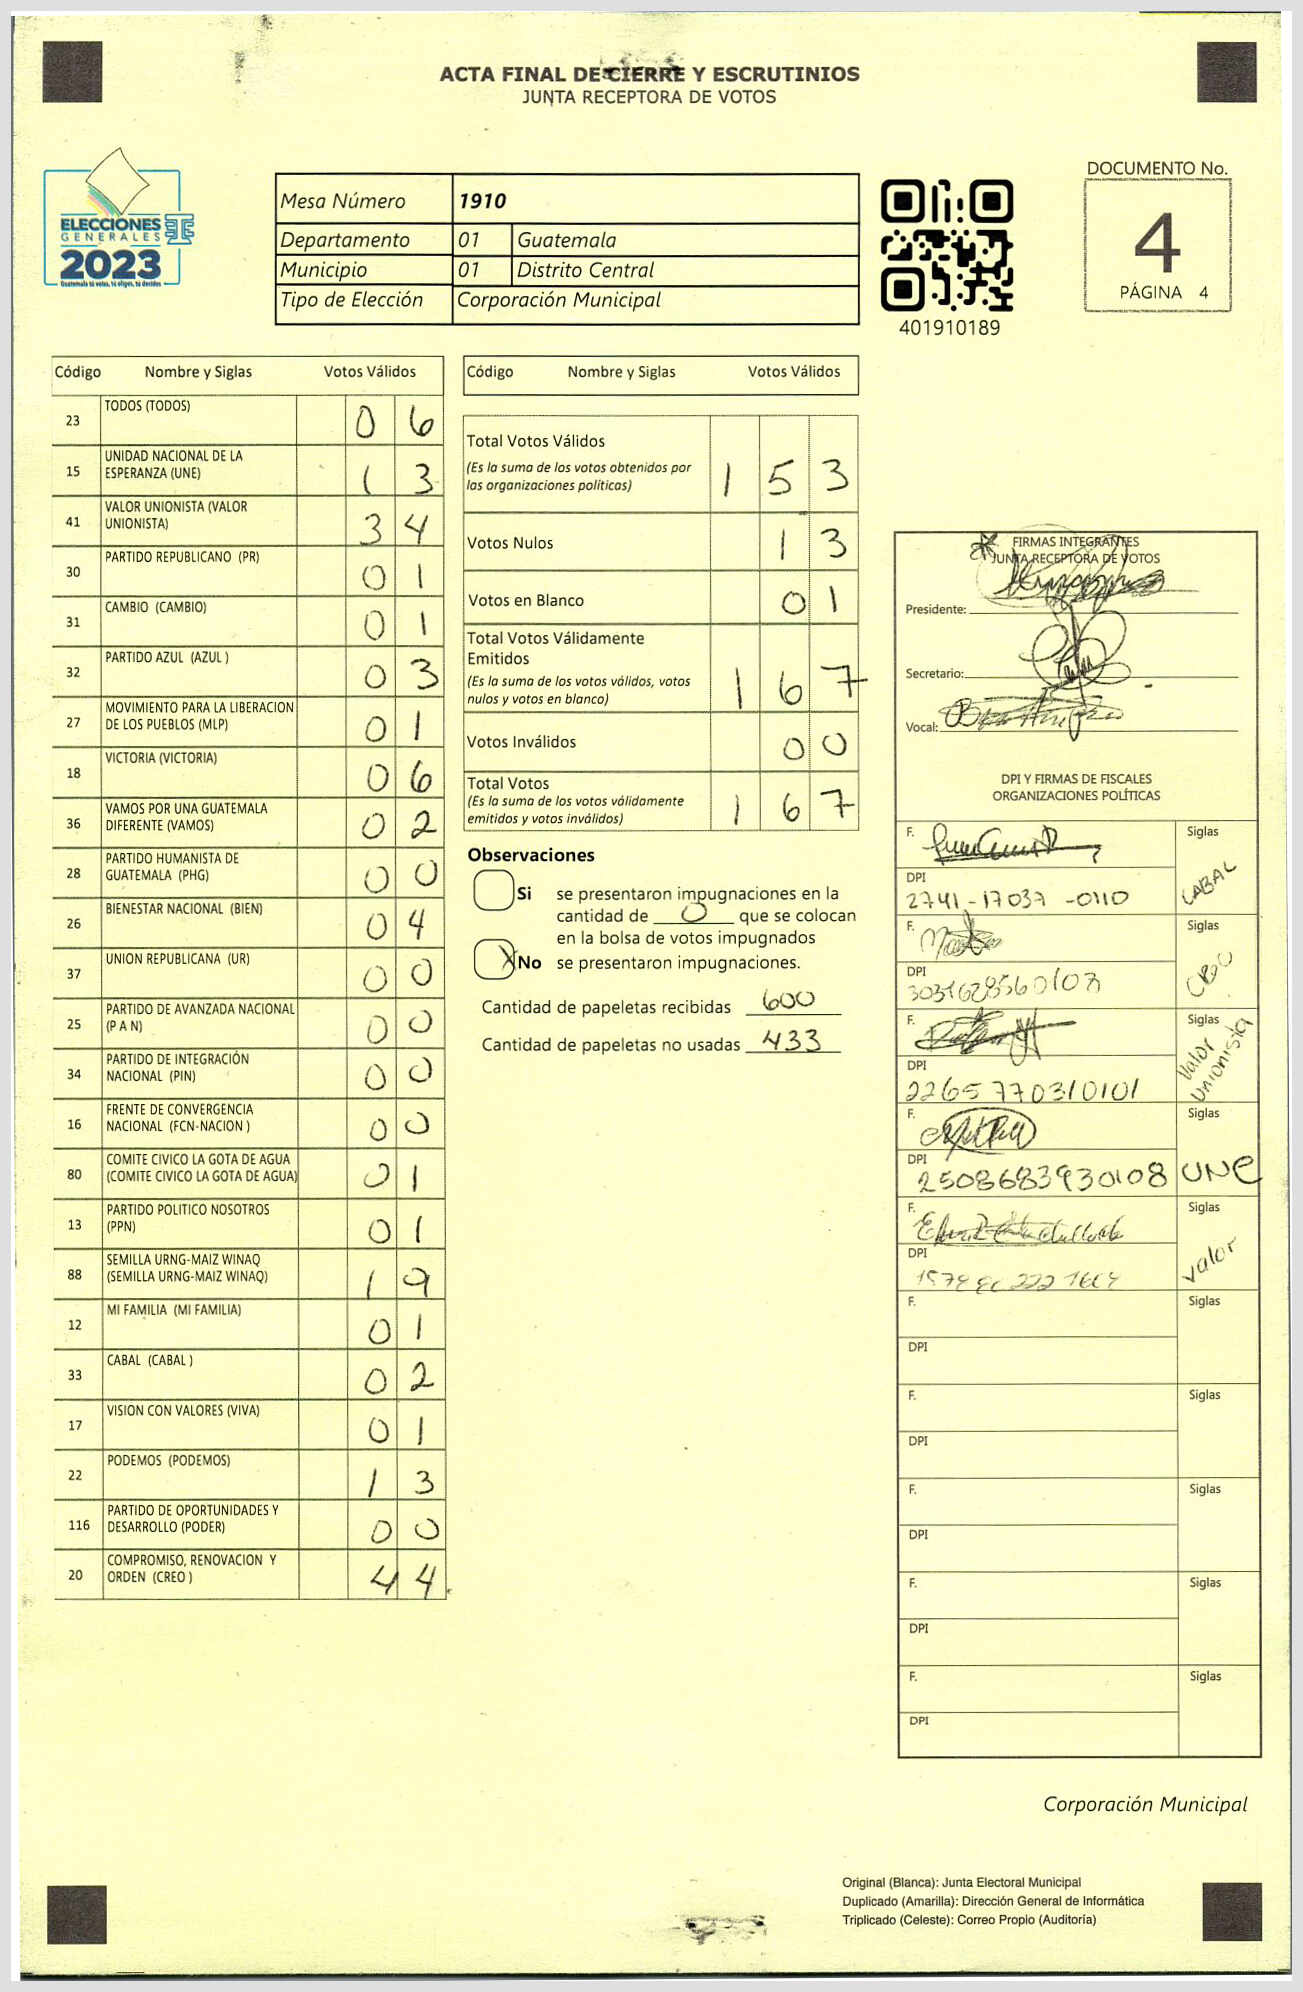 ACTA FINAL DE CIERRE Y ESCRUTINIOS
JUNTA RECEPTORA DE VOTOS
ELECCIONES
GENERALES
2023
Guatemala tú votas, tú eliges, tú decides
Mesa Número 1910
Departamento 01 Guatemala
Municipio 01 Distrito Central
Tipo de Elección Corporación Municipal
401910189
DOCUMENTO No.
4
PÁGINA 4
Código Nombre y Siglas Votos Válidos
23 TODOS (TODOS) 0 6
15 UNIDAD NACIONAL DE LA
ESPERANZA (UNE) 1 3
41 VALOR UNIONISTA (VALOR
UNIONISTA) 3 4
30 PARTIDO REPUBLICANO (PR) 0 1
31 CAMBIO (CAMBIO) 0 1
32 PARTIDO AZUL (AZUL ) 0 3
27 MOVIMIENTO PARA LA LIBERACION
DE LOS PUEBLOS (MLP) 0 1
18 VICTORIA (VICTORIA) 0 6
36 VAMOS POR UNA GUATEMALA
DIFERENTE (VAMOS) 0 2
28 PARTIDO HUMANISTA DE
GUATEMALA (PHG) 0 0
26 BIENESTAR NACIONAL (BIEN) 0 4
37 UNION REPUBLICANA (UR) 0 0
25 PARTIDO DE AVANZADA NACIONAL
(P A N) 0 0
34 PARTIDO DE INTEGRACIÓN
NACIONAL (PIN) 0 0
16 FRENTE DE CONVERGENCIA
NACIONAL (FCN-NACION ) 0 0
80 COMITE CIVICO LA GOTA DE AGUA
(COMITE CIVICO LA GOTA DE AGUA) 0 1
13 PARTIDO POLITICO NOSOTROS
(PPN) 0 1
88 SEMILLA URNG-MAIZ WINAQ
(SEMILLA URNG-MAIZ WINAQ) 1 9
12 MI FAMILIA (MI FAMILIA) 0 1
33 CABAL (CABAL ) 0 2
17 VISION CON VALORES (VIVA) 0 1
22 PODEMOS (PODEMOS) 1 3
116 PARTIDO DE OPORTUNIDADES Y
DESARROLLO (PODER) 0 0
20 COMPROMISO, RENOVACION Y
ORDEN (CREO ) 4 4
Código Nombre y Siglas Votos Válidos
Total Votos Válidos
(Es la suma de los votos obtenidos por
las organizaciones políticas) 1 5 3
Votos Nulos 1 3
Votos en Blanco 0 1
Total Votos Válidamente
Emitidos
(Es la suma de los votos válidos, votos
nulos y votos en blanco) 1 6 7
Votos Inválidos 0 0
Total Votos
(Es la suma de los votos válidamente
emitidos y votos inválidos) 1 6 7
Observaciones
Si se presentaron impugnaciones en la
cantidad de 0 que se colocan
en la bolsa de votos impugnados
X No se presentaron impugnaciones.
Cantidad de papeletas recibidas 600
Cantidad de papeletas no usadas 433
FIRMAS INTEGRANTES
JUNTA RECEPTORA DE VOTOS
Presidente:
Secretario:
Vocal:
DPI Y FIRMAS DE FISCALES
ORGANIZACIONES POLÍTICAS
F. Siglas
DPI CABAL
2741-17037-0110
F. Siglas
DPI
F. Siglas
DPI Valor Unionista
2265770310101
F. Siglas
DPI
2508683930108 UNE
F. Siglas
DPI Valor
F. Siglas
DPI
F. Siglas
DPI
F. Siglas
DPI
F. Siglas
DPI
F. Siglas
DPI
Corporación Municipal
Original (Blanca): Junta Electoral Municipal
Duplicado (Amarilla): Dirección General de Informática
Triplicado (Celeste): Correo Propio (Auditoría)